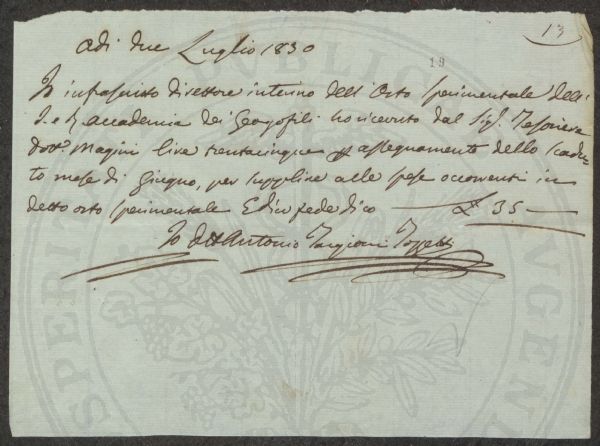 13
19
Adi due Luglio 1830
Io infrascritto direttore interino dell'Orto sperimentale dell'
I. e R. accademia dei Georgofili ho ricevuto dal Sig. Tesoriere
Dott. Magini lire trentacinque assegnamento dello scadu-
to mese di Giugno, per supplire alle spese occorrenti in
detto orto sperimentale E di cio fede dico £ 35
Io Dott Antonio Targioni Tozzetti
PUBLICAE